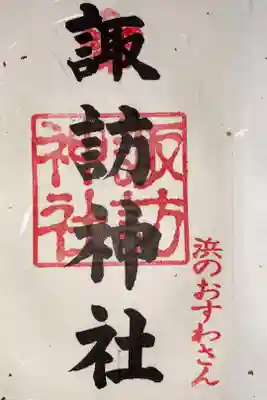 諏訪神社
諏訪神社
浜のおすわさん